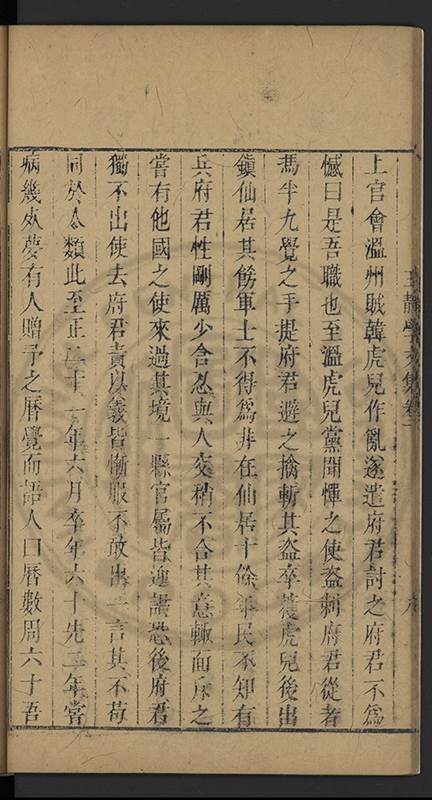 王靜學文集卷二
六
上官會溫州賊韓虎兒作亂遂遣府君討之府君不爲
憾曰是吾職也至溫虎兒黨聞憚之使盜刺府君從者
馮半九覺之手提府君避之擒斬其盜卒獲虎兒後出
鎮仙居其餝軍士不得爲非在仙居十餘年民不知有
兵府君性剛厲少含忍與人交稍不合其意輙面斥之
嘗有他國之使來過其境一縣官屬皆迎謁恐後府君
獨不出使去府君責以義皆慚服不敢出一言其不苟
同於人類此至正二十一年六月卒年六十先二年當
病幾歿夢有人贈予之曆覺而語人曰曆數周六十吾